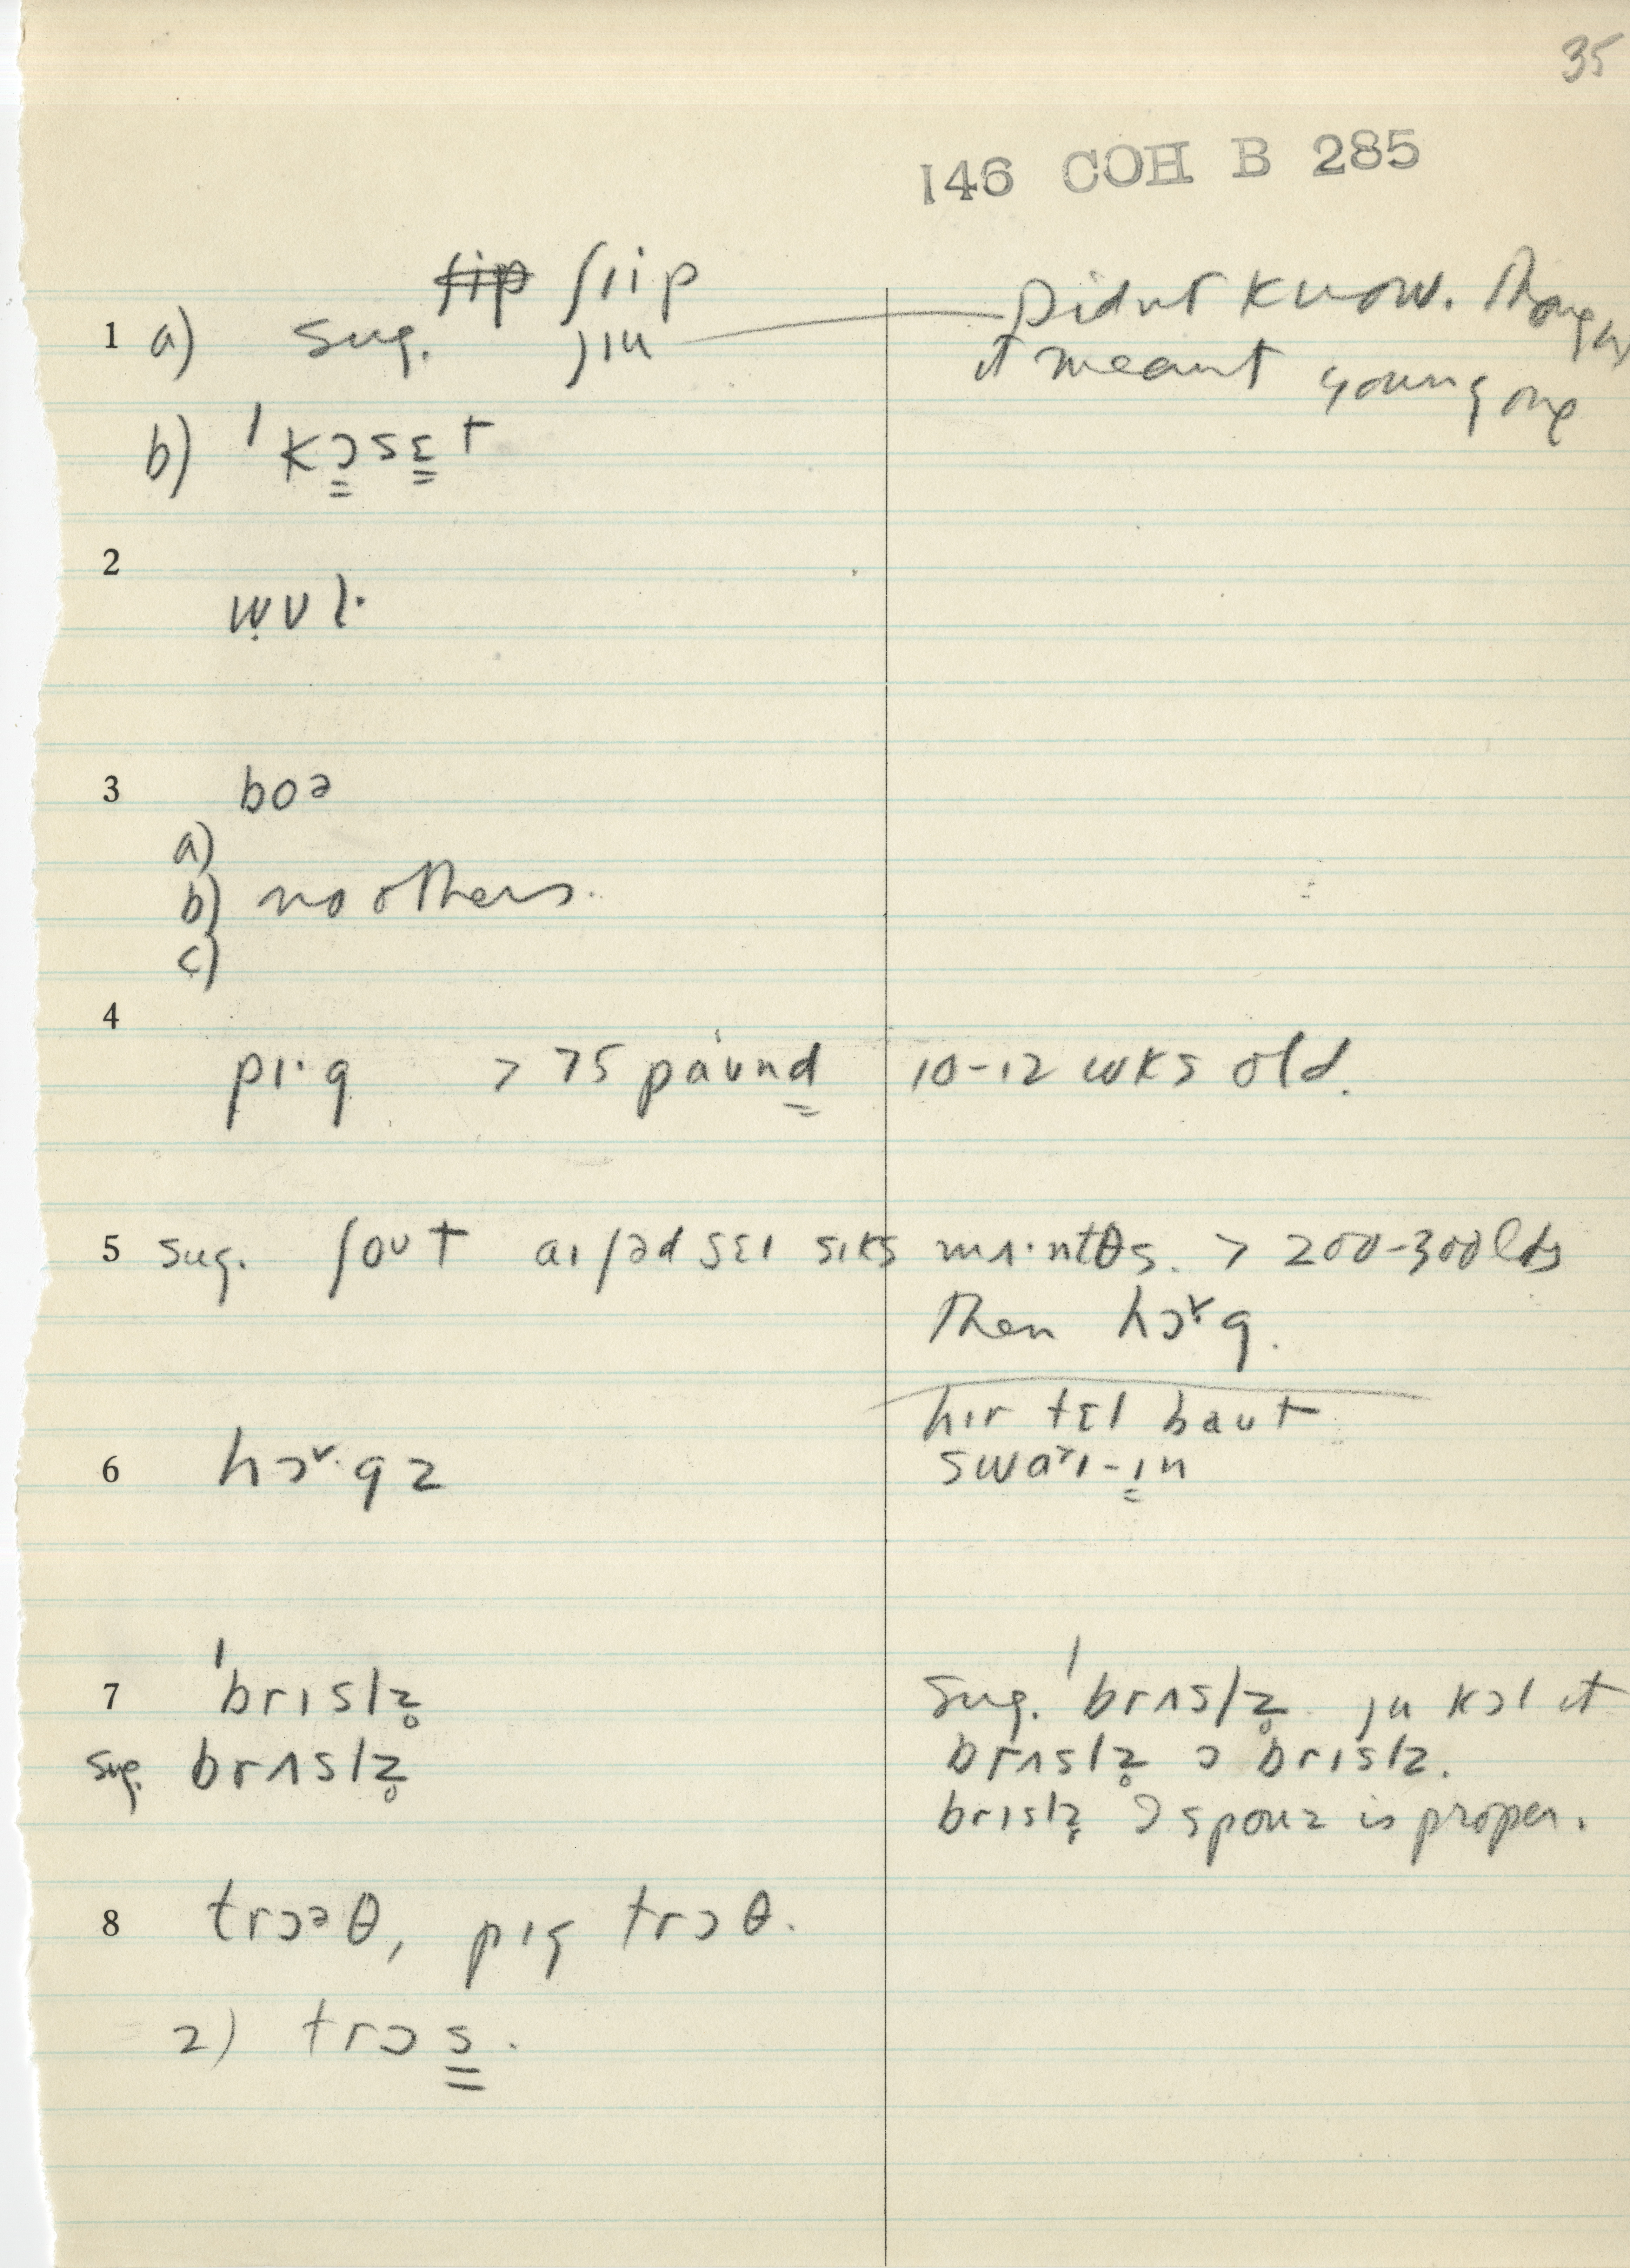 35
146 COH B 285
ʃip ʃiip
1 a) sug. jiu Didnt know. Thought
it meant young one
b) ˈkɔsɛt
2
wʊl·
3 boə
a)
b) no others.
c)
4
pɪ·g > 75 paʊnd 10-12 wks old.
5 sug. ʃoʊt aɪ ʃəd sɛɪ sɪks mʌ·ntθs. > 200-300 lbs
Then hɔ˅g.
hɪr tɛl baut
6 hɔ˅·gz swa˃ɪ-ɪn
7 ˈbrɪslz̥ sug. ˈbrʌslz̥ ju kɔl it
sug. brʌslz̥ brʌslz̥ ɔ brɪslz.
brɪslz̥ ɔ spouz is proper.
8 trɔəθ, pɪg trɔθ.
2) trɔs.